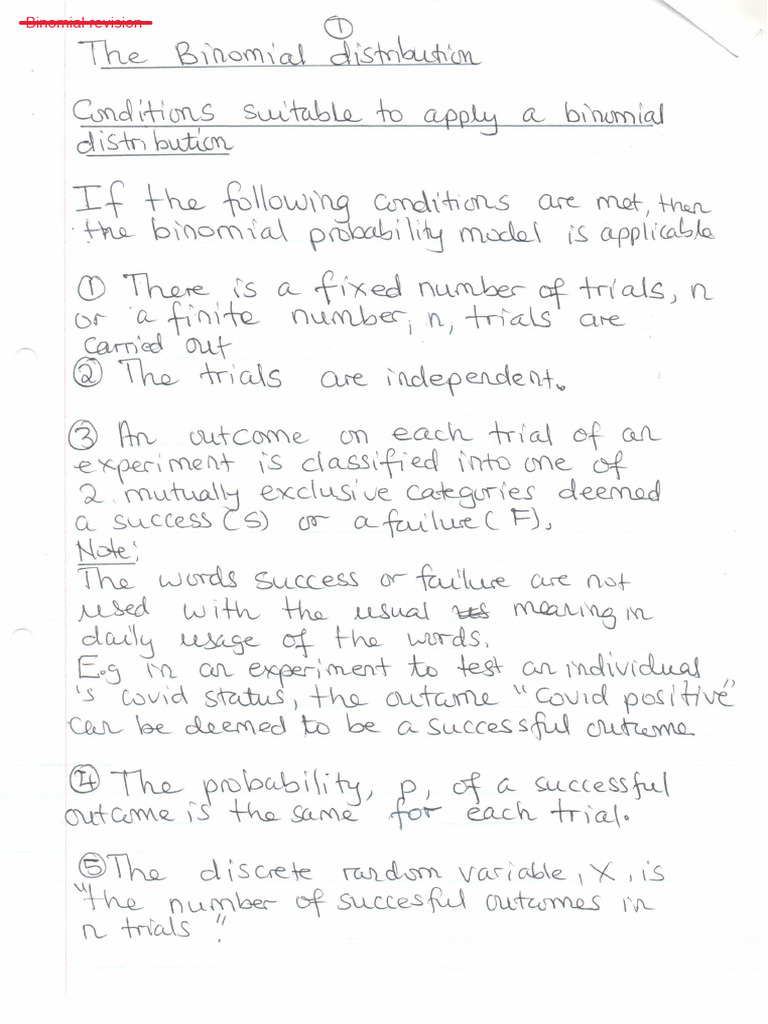 Binomial revision
①
The Binomial distribution
Conditions suitable to apply a binomial
distribution
If the following conditions are met, then
the binomial probability model is applicable
① There is a fixed number of trials, n
or a finite number, n, trials are
carried out
② The trials are independent.
③ An outcome on each trial of an
experiment is classified into one of
2 mutually exclusive categories deemed
a success (S) or a failure (F).
Note:
The words success or failure are not
used with the usual meaning in
daily usage of the words.
E.g in an experiment to test an individual
's covid status, the outcome "covid positive"
can be deemed to be a successful outcome
④ The probability, p, of a successful
outcome is the same for each trial.
⑤ The discrete random variable, X, is
"the number of succesful outcomes in
n trials".